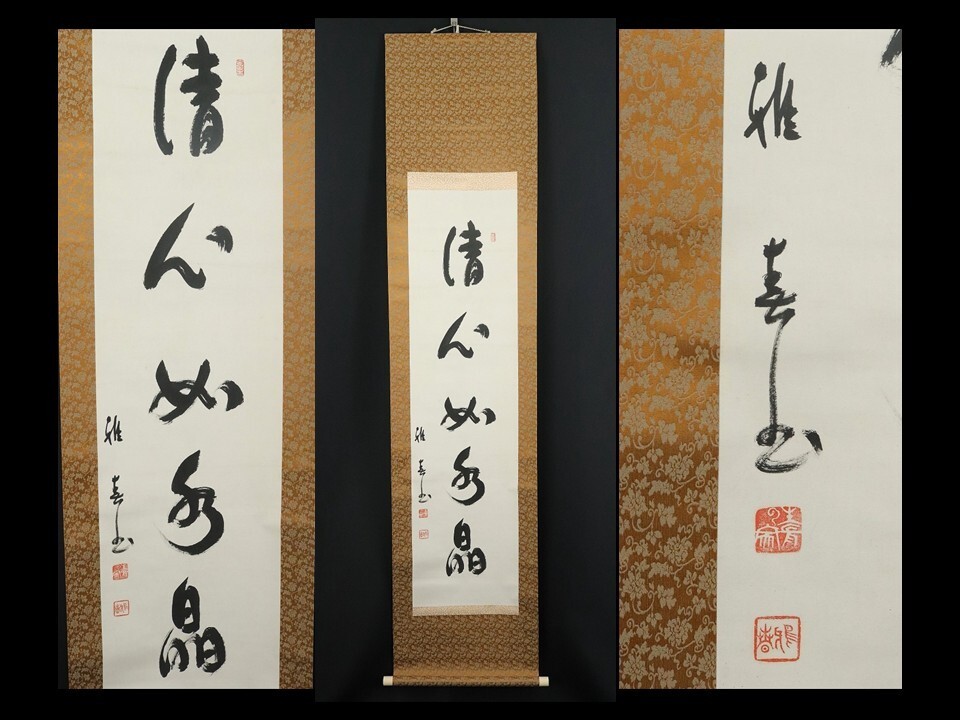 清心如水晶
雅春書
清心如水晶
雅春書
雅春書